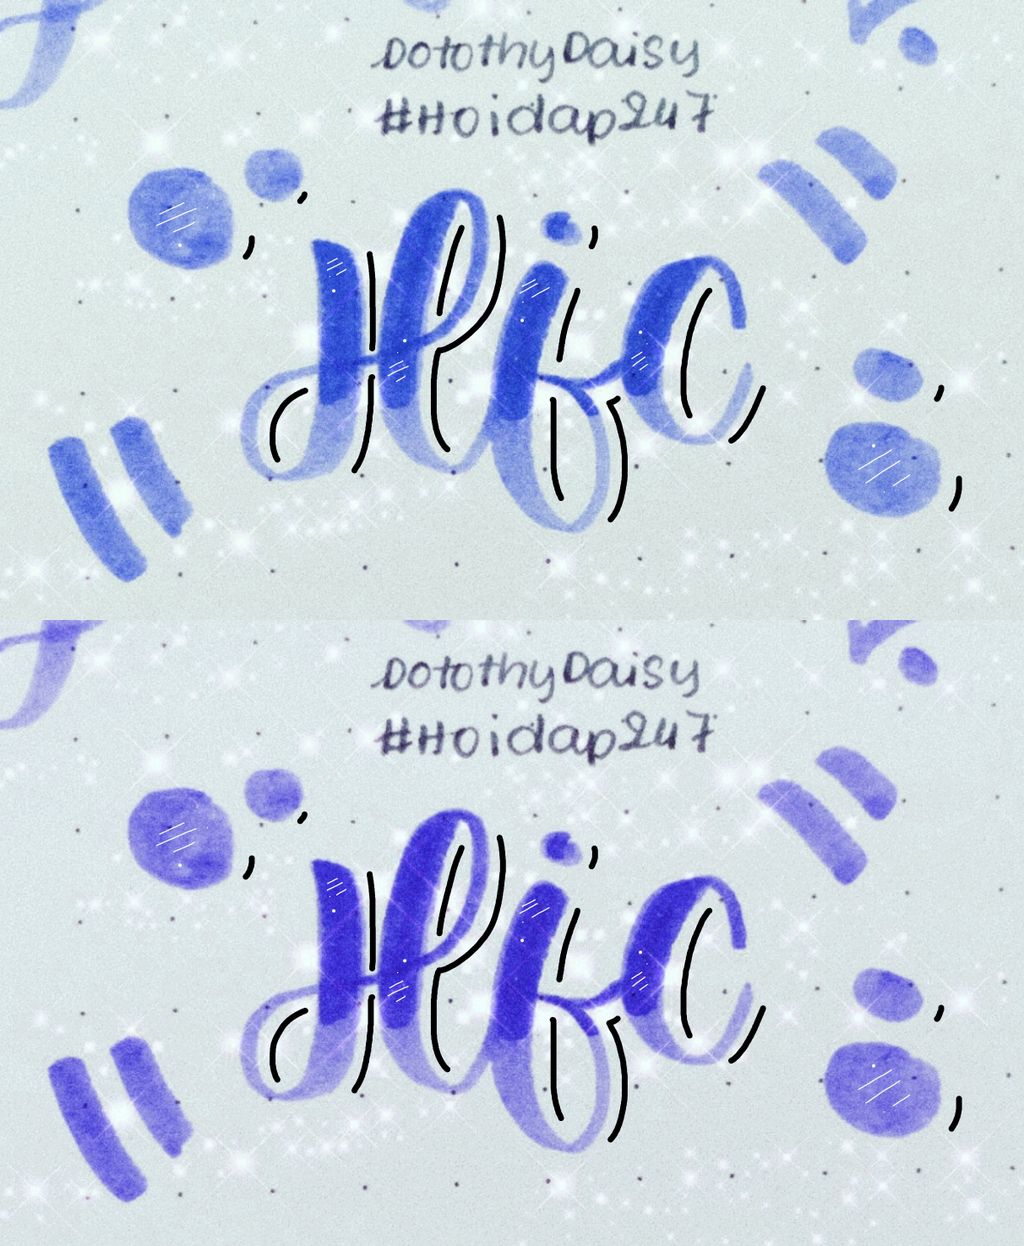 DotothyDaisy
#Hoidap247
Hfc
DotothyDaisy
#Hoidap247
Hfc